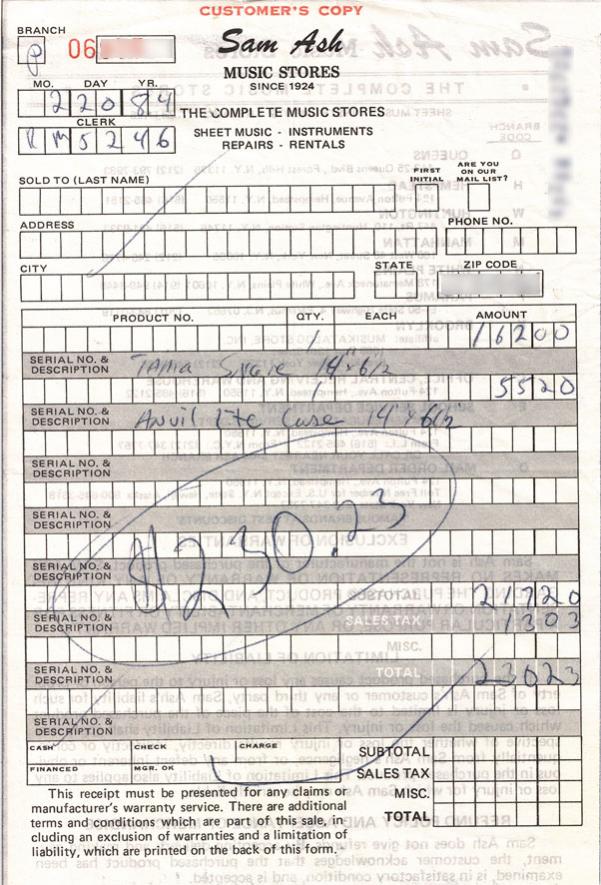 CUSTOMER'S COPY
BRANCH
06
Sam Ash
MUSIC STORES
SINCE 1924
MO. DAY YR.
2 20 84
THE COMPLETE MUSIC STORES
CLERK
RM5246
SHEET MUSIC - INSTRUMENTS
REPAIRS - RENTALS
SOLD TO (LAST NAME)
FIRST INITIAL
ARE YOU ON OUR MAIL LIST?
ADDRESS
PHONE NO.
CITY
STATE
ZIP CODE
PRODUCT NO. QTY. EACH AMOUNT
1 16200
SERIAL NO. & DESCRIPTION Tama Snare 14" x 6 1/2
5520
SERIAL NO. & DESCRIPTION Anvil lite Case 14" x 6 1/2
SERIAL NO. & DESCRIPTION
SERIAL NO. & DESCRIPTION
$230.23
SERIAL NO. & DESCRIPTION
SUBTOTAL 21720
SERIAL NO. & DESCRIPTION SALES TAX 1303
MISC.
SERIAL NO. & DESCRIPTION TOTAL 23023
SERIAL NO. & DESCRIPTION
CASH CHECK CHARGE
SUBTOTAL
FINANCED MGR. OK
SALES TAX
MISC.
TOTAL
This receipt must be presented for any claims or
manufacturer's warranty service. There are additional
terms and conditions which are part of this sale, in
cluding an exclusion of warranties and a limitation of
liability, which are printed on the back of this form.